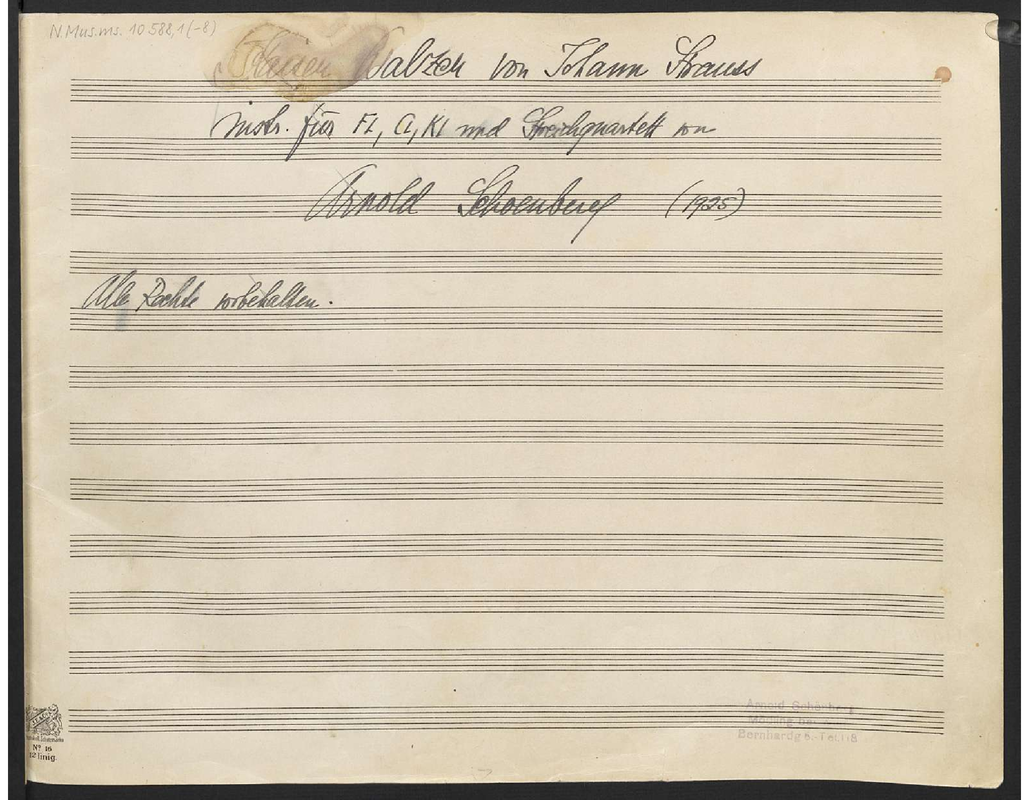 N.Mus.ms. 10 588,1 (-8)
Kaiser Walzer von Johann Strauss
instr. für Fl, Cl, Kl und Streichquartett von
Arnold Schoenberg (1925)
Alle Rechte vorbehalten.
Arnold Schönberg
Mödling bei
Bernhardg 6. Tel 118
No 16
12 linig.